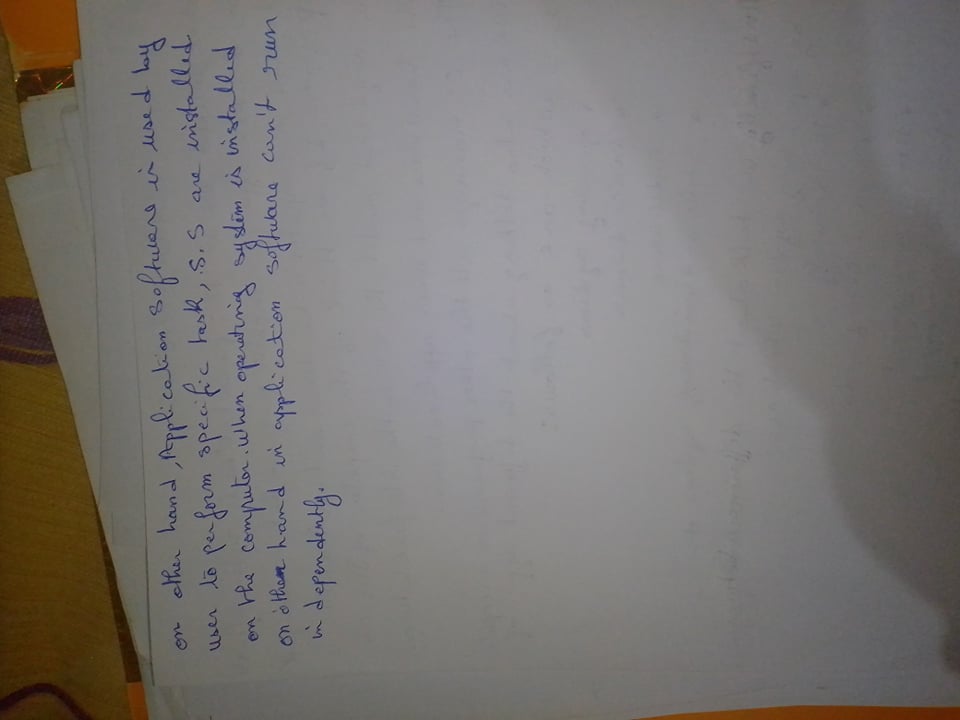 on other hand, Application software is used by
user to perform specific task, S.S are installed
on the computor. When operating system is installed
on other hand in application software can't run
independently.